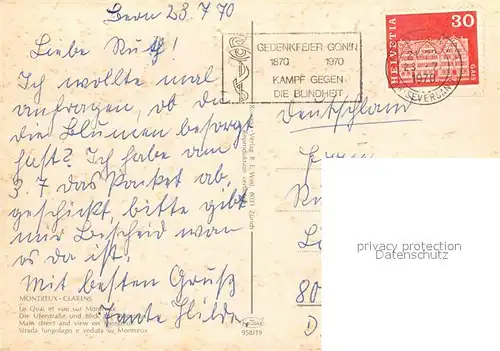 Bern 23.7.70
Liebe Ruth!
Ich wollte mal
anfragen, ob du
die Blumen besorgt
hast? Ich habe am
3.7 das Packet ab,
geschickt, bitte gibt
mir Bescheid wan
es da ist.
Mit besten Gruß
Tante Hilde
GEDENKFEIER GONIN
1870 1970
KAMPF GEGEN
DIE BLINDHEIT
HELVETIA
30
Deutschland
80
D
privacy protection
Datenschutz
MONTREUX-CLARENS
Le Quai et vue sur Montreux
Die Uferstraße und Blick
Main street and view on Montreux
Strada lungolago e veduta su Montreux
958/19